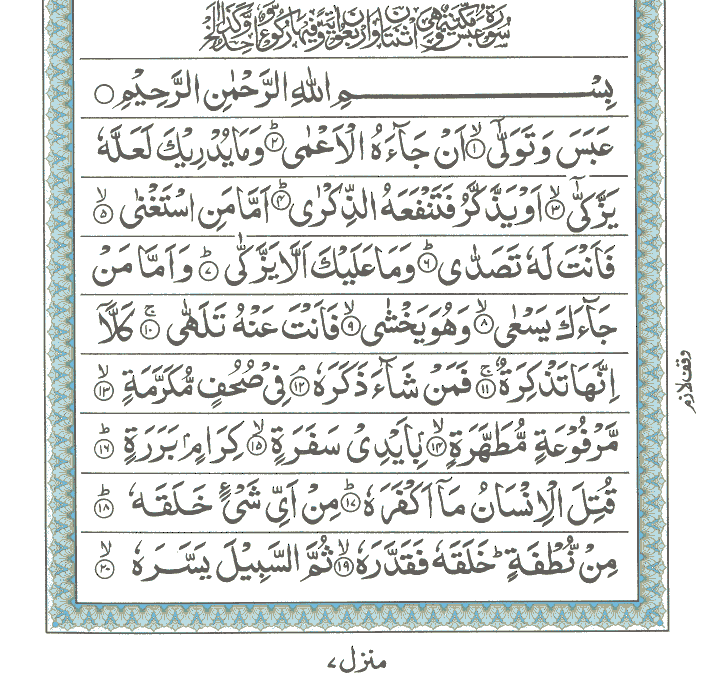 سُوْرَةُ عَبَسَ مَكِّيَّةٌ وَّهِيَ اثْنَتَانِ وَاَرْبَعُوْنَ اٰيَةً وَّفِيْهَا رُكُوْعٌ وَّاحِدٌ
بِسْمِ اللهِ الرَّحْمٰنِ الرَّحِيْمِ ○
عَبَسَ وَتَوَلّٰٓى ۙ﴿۱﴾ اَنْ جَآءَهُ الْاَعْمٰى ؕ﴿۲﴾ وَمَا يُدْرِيْكَ لَعَلَّهٗ
يَزَّكّٰٓى ۙ﴿۳﴾ اَوْ يَذَّكَّرُ فَتَنْفَعَهُ الذِّكْرٰى ؕ﴿۴﴾ اَمَّا مَنِ اسْتَغْنٰى ۙ﴿۵﴾
فَاَنْتَ لَهٗ تَصَدّٰى ؕ﴿۶﴾ وَمَا عَلَيْكَ اَلَّا يَزَّكّٰى ؕ﴿۷﴾ وَاَمَّا مَنْ
جَآءَكَ يَسْعٰى ۙ﴿۸﴾ وَهُوَ يَخْشٰى ۙ﴿۹﴾ فَاَنْتَ عَنْهُ تَلَهّٰى ۚ﴿۱۰﴾ كَلَّآ
اِنَّهَا تَذْكِرَةٌ ۚ﴿۱۱﴾ فَمَنْ شَآءَ ذَكَرَهٗ ۘ﴿۱۲﴾ فِيْ صُحُفٍ مُّكَرَّمَةٍ ۙ﴿۱۳﴾
مَّرْفُوْعَةٍ مُّطَهَّرَةٍ ۙ﴿۱۴﴾ بِاَيْدِيْ سَفَرَةٍ ۙ﴿۱۵﴾ كِرَامٍۭ بَرَرَةٍ ؕ﴿۱۶﴾
قُتِلَ الْاِنْسَانُ مَآ اَكْفَرَهٗ ؕ﴿۱۷﴾ مِنْ اَيِّ شَيْءٍ خَلَقَهٗ ؕ﴿۱۸﴾
مِنْ نُّطْفَةٍ ؕ خَلَقَهٗ فَقَدَّرَهٗ ۙ﴿۱۹﴾ ثُمَّ السَّبِيْلَ يَسَّرَهٗ ۙ﴿۲۰﴾
وقف لازم
منزل ۷